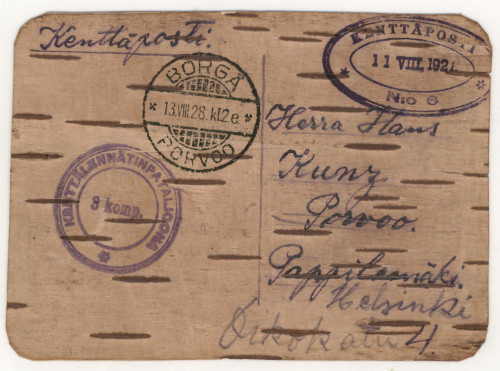 Kenttäposti.
KENTTÄPOSTI
11 VIII. 192
N:o 6
BORGÅ
13.VIII.28.kl.2e.
PORVOO
KENTTÄLENNÄTINPATALJOONA
3 komp.
Herra Hans
Kunz
Porvoo.
Pappilanmäki.
Helsinki
4.